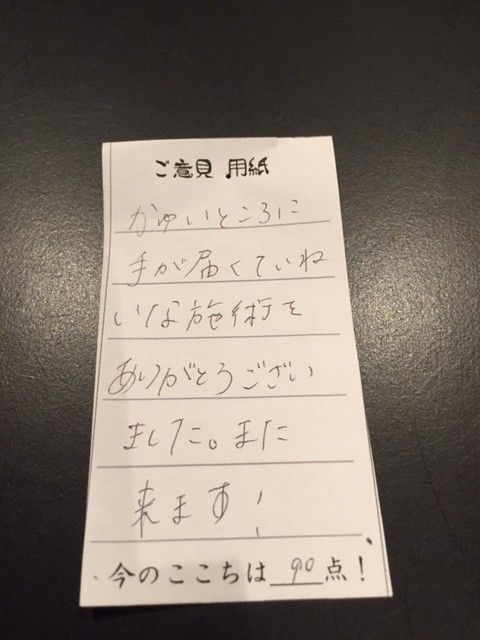 ご意見 用紙
かゆいところに
手が届くていね
いな施術を
ありがとうござい
ました。また
来ます!
今のここちは 90 点!